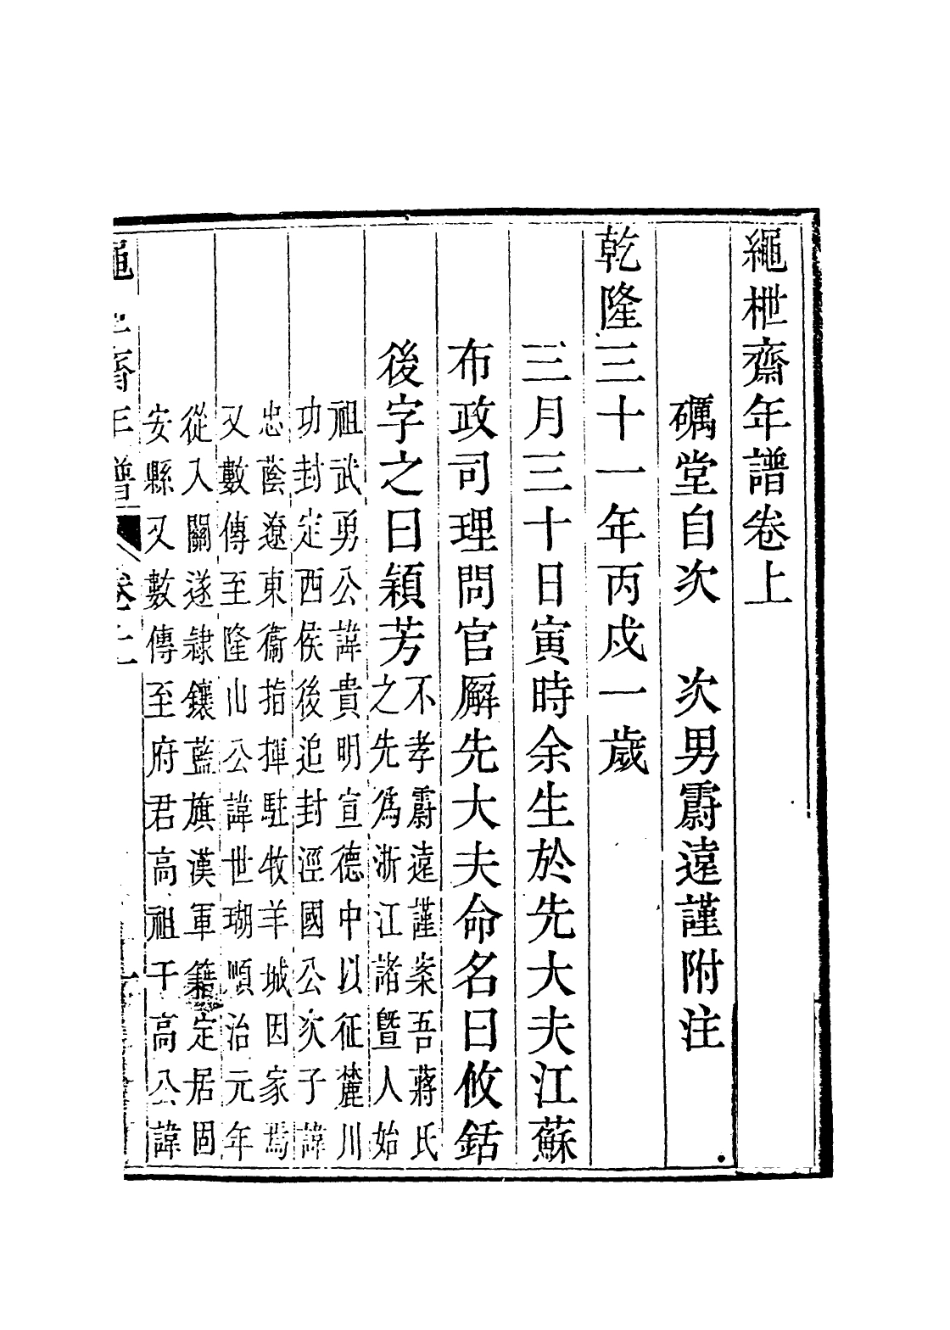 繩枻齋年譜卷上
礪堂自次　次男霨遠謹附注
乾隆三十一年丙戌一歲
三月三十日寅時余生於先大夫江蘇
布政司理問官廨先大夫命名曰攸銛
後字之曰穎芳不孝霨遠謹案吾蔣氏
之先為浙江諸暨人始
祖武勇公諱貴明宣德中以征麓川
功封定西侯後追封涇國公次子諱
忠蔭遼東衞指揮駐牧羊城因家焉
又數傳至隆山公諱世瑚順治元年
從入關遂隸鑲藍旗漢軍籍定居固
安縣又數傳至府君高祖干高公諱